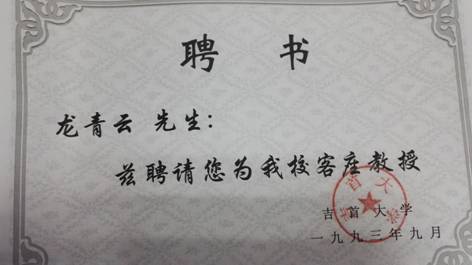 聘 书
龙青云 先生：
兹聘请您为我校客座教授
吉首大学
吉首大学
一九九三年九月